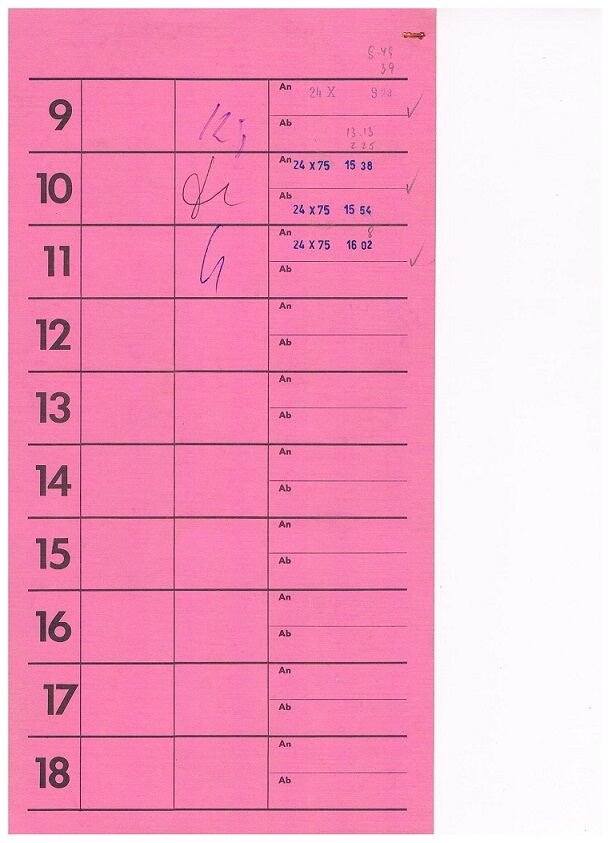 39
9
An 24 X 9 28
Ab
13.13
2 25
10
An 24 X 75 15 38
Ab 24 X 75 15 54
8
11
An 24 X 75 16 02
Ab
12
An
Ab
13
An
Ab
14
An
Ab
15
An
Ab
16
An
Ab
17
An
Ab
18
An
Ab